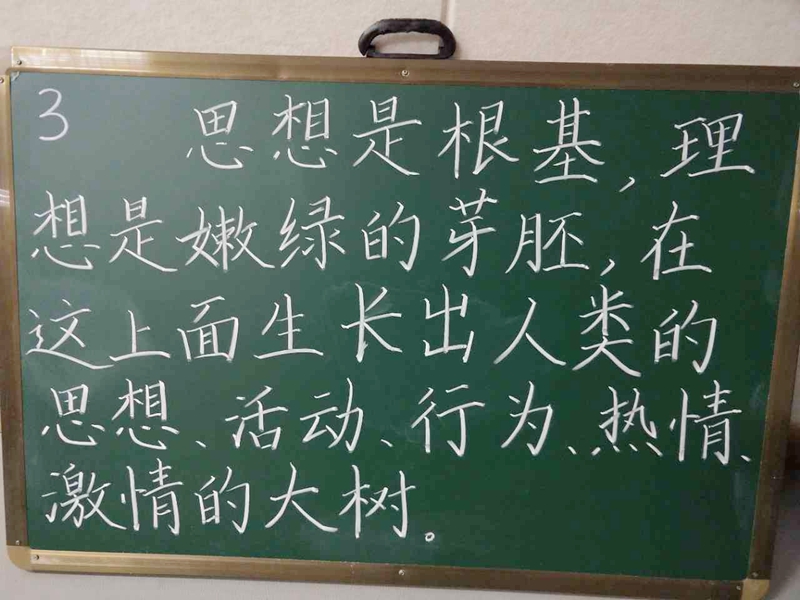 3 思想是根基,理
想是嫩绿的芽胚,在
这上面生长出人类的
思想、活动、行为、热情、
激情的大树。